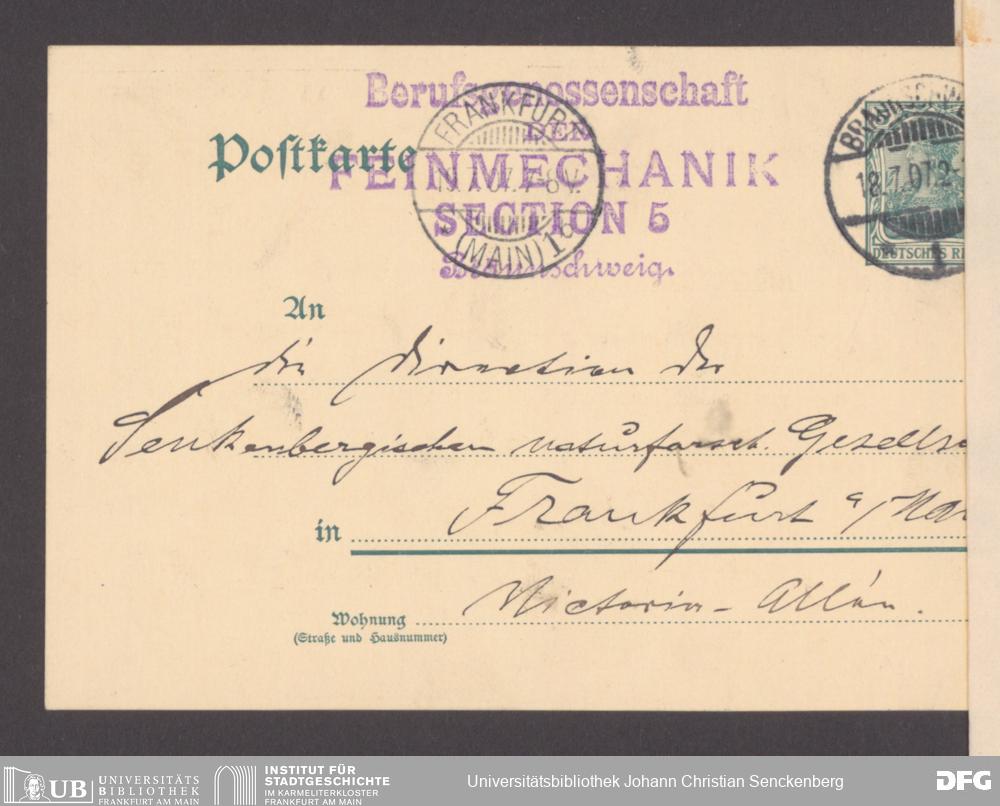 Berufsgenossenschaft
DER
FEINMECHANIK
SECTION 5
Braunschweig.
Postkarte
FRANKFURT
19.7.07.7-8V.
(MAIN) 1
BRAUNSCHWE
18.7.07.2-
DEUTSCHES RE
An
die Direction der
Senkenbergischen naturforsch. Gesells
in Frankfurt a/Ma
Wohnung Victoria-Allée.
(Straße und Hausnummer)
UB UNIVERSITÄTS
BIBLIOTHEK
FRANKFURT AM MAIN
INSTITUT FÜR
STADTGESCHICHTE
IM KARMELITERKLOSTER
FRANKFURT AM MAIN
Universitätsbibliothek Johann Christian Senckenberg
DFG